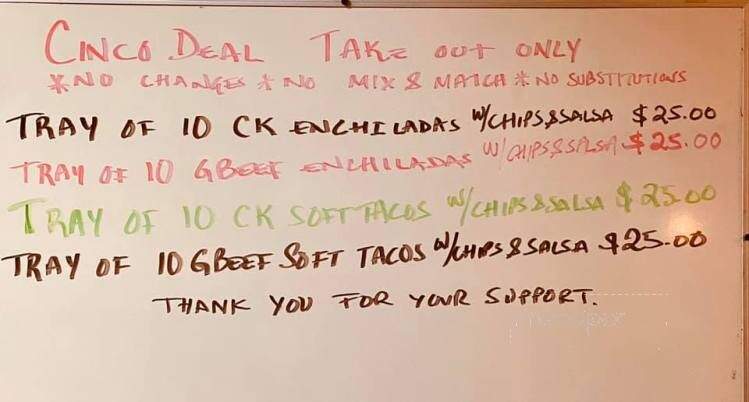 CINCO DEAL TAKE OUT ONLY
*NO CHANGES *NO MIX & MATCH *NO SUBSTITUTIONS
TRAY OF 10 CK ENCHILADAS W/CHIPS&SALSA $25.00
TRAY OF 10 GBEEF ENCHILADAS W/CHIPS&SALSA $25.00
TRAY OF 10 CK SOFT TACOS W/CHIPS&SALSA $25.00
TRAY OF 10 GBEEF SOFT TACOS W/CHIPS&SALSA $25.00
THANK YOU FOR YOUR SUPPORT.